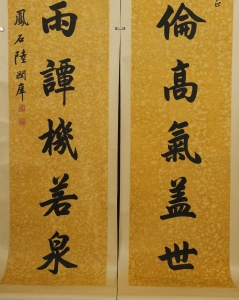 倫高氣蓋世
雨譚機若泉
鳳石陸潤庠